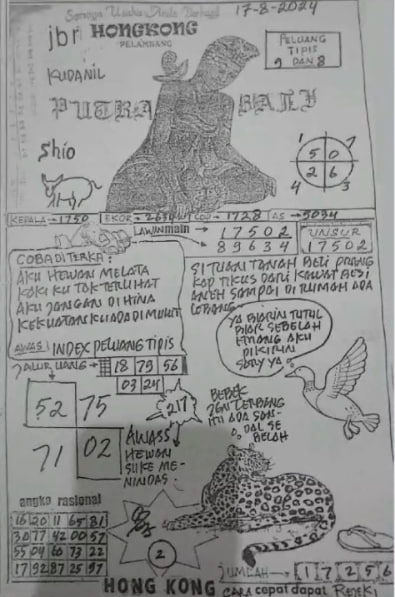 Semoga Usaha Anda Berhasil
17-8-2024
jbr HONGKONG
PELAMBANG
PELUANG
TIPIS
9 DAN 8
KUDANIL
PUTRA BALI
Shio
1 7
5 0
2 6
4 3
KEPALA → 1750 EKOR → 2634 COP → 1728 AS → 5034
LAWAN main → 17502
89634
UNSUR
17502
COBA DITERKA:
AKU HEWAN MELATA
KAKI KU TOK TERLIHAT
AKU JANGAN DI HINA
KEKUATAN KU ADA DI MULUT
SI TUAN TANAH BELI PRANG
KAP TIKUS DARI KAWAT BESI
ANEH SAMPAI DI RUMAH ADA
LOBANG
AWAS! INDEX PELUANG TIPIS
JALUR UANG → 18 79 56
03 24
YA BIARIN TUTUL
BIAR SEBELAH
HILANG AKU
DIKIRIN
SORY YA
52 75
217
BEBEK
YGN TERBANG
ITU ADA SAN-
DAL SE
BELAH
71 02
AWASS
HEWAN
SUKE ME-
NINDAS
angka rasional
16 20 11 65 81
30 77 42 00 57
55 04 60 73 22
17 92 87 25 97
2
HONG KONG
JUMLAH → 1 7 2 5 6
CARA cepat dapat Rezeki